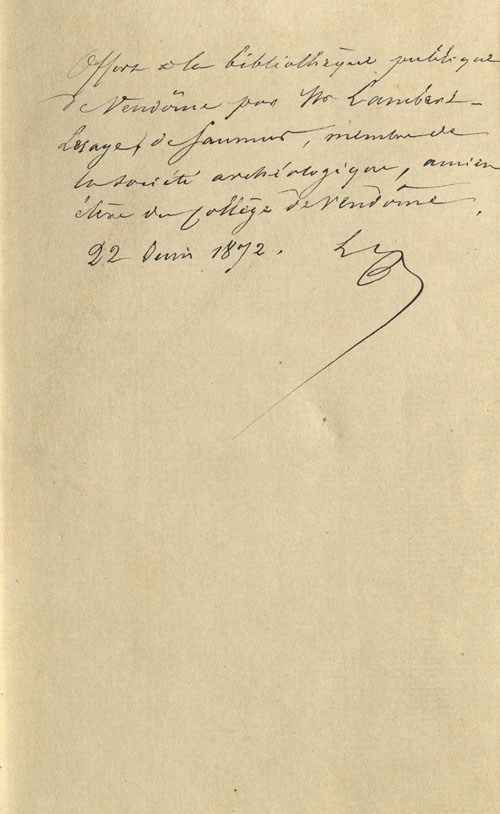 Offert à la bibliothèque publique
de Vendôme par Mr Lambert-
Lesage, de Saumur, membre de
la Société archéologique, ancien
élève du Collège de Vendôme.
22 Juin 1872.